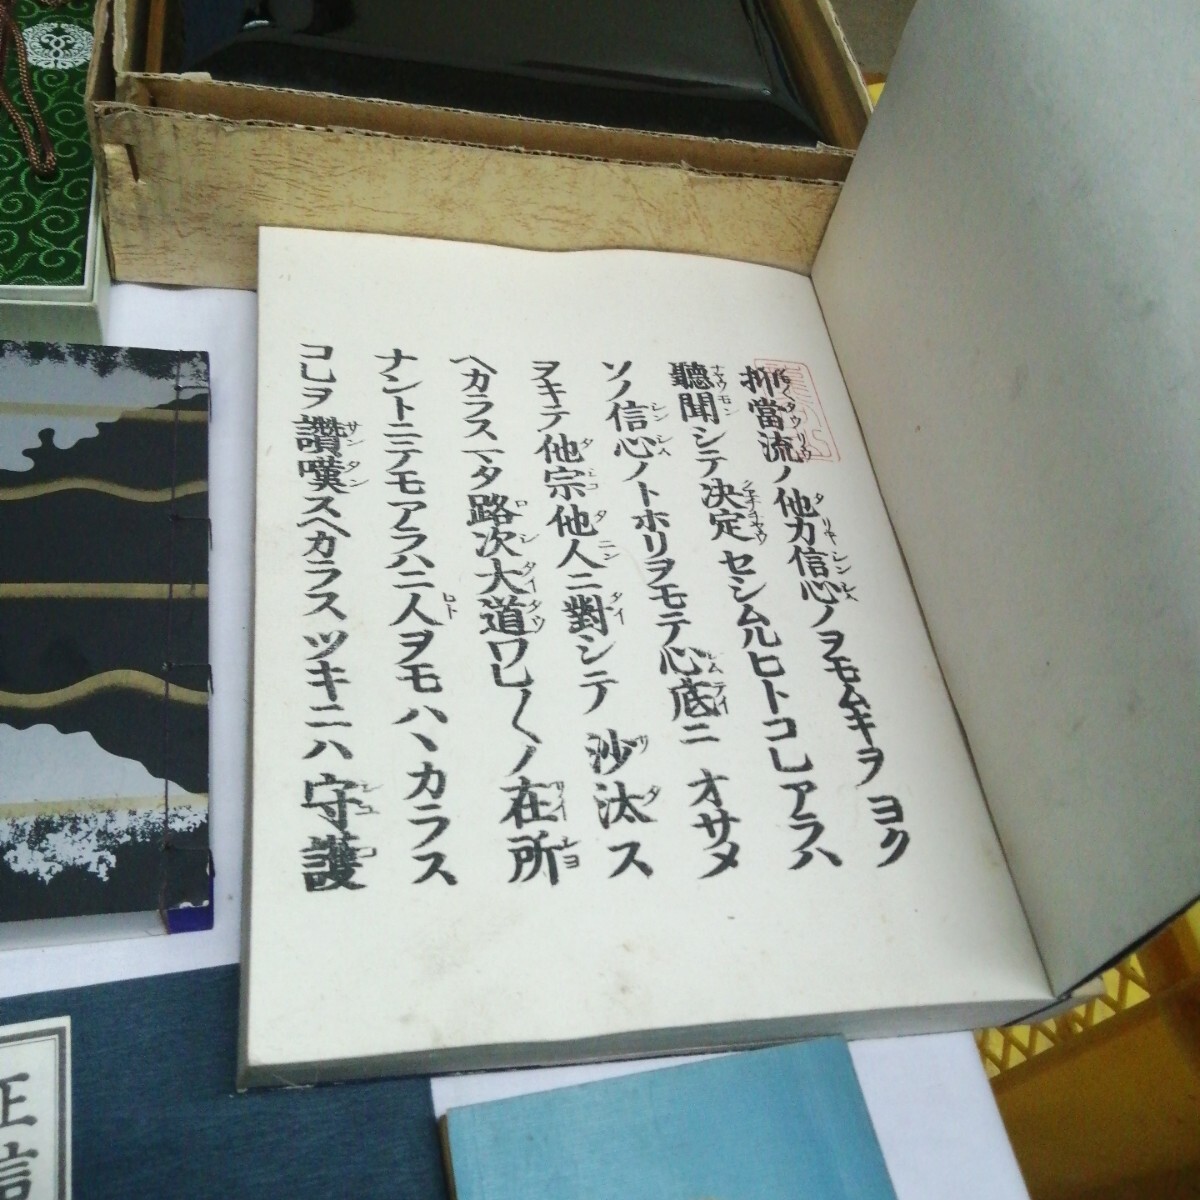 抑當流ノ他力信心ノヲモムキヲヨク
聽聞シテ决定セシムルヒトコレアラハ
ソノ信心ノトホリヲモテ心底ニオサメ
ヲキテ他宗他人ニ對シテ沙汰ス
ヘカラスマタ路次大道ワレ〱ノ在所
ナントニテモアラハニ人ヲモハヽカラス
コレヲ讚嘆スヘカラスツキニハ守護
正信